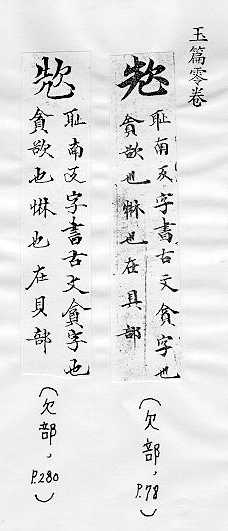 玉篇零卷
耻南反字書古文貪字也
貪欲也惏也在貝部
（欠部，P.78）
耻南反字書古文貪字也
貪欲也惏也在貝部
（欠部，P.280）